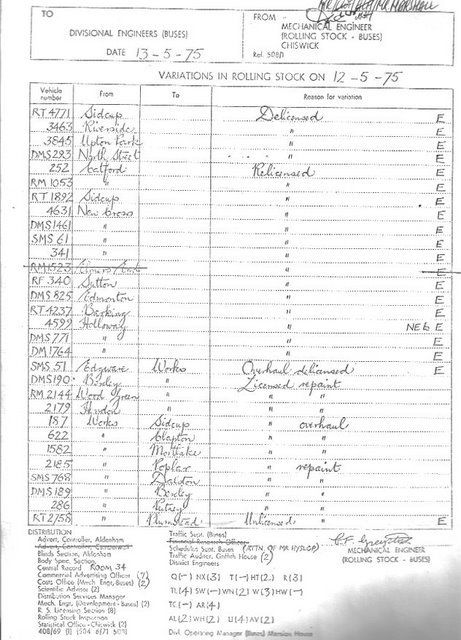 TO
FROM
DIVISIONAL ENGINEERS (BUSES)
MECHANICAL ENGINEER
(ROLLING STOCK - BUSES)
CHISWICK
DATE 13-5-75
Ref. 508/1
VARIATIONS IN ROLLING STOCK ON 12-5-75
Vehicle number From To Reason for variation
RT 4771 Sidcup Delicensed E
3463 Riverside " E
3845 Upton Park " E
DMS 293 North Street " E
252 Catford Relicensed E
RM 1053 " " E
RT 1892 Sidcup " E
4631 New Cross " E
DMS 1461 " " E
SMS 61 " " E
341 " " E
RM 1523 " E
RF 340 Sutton " E
DMS 825 Edmonton " E
RT 4237 Barking " E
4599 Holloway " NE6 E
DMS 771 " " E
DM 1764 " " E
SMS 51 Edgware Works Overhaul delicensed E
DMS 190 Bexley " Licensed repaint
RM 2144 Wood Green " " "
2179 Hendon " " "
187 Works Sidcup " overhaul
622 " Clapton " "
1582 " Mortlake " "
2185 " Poplar " repaint
SMS 768 " Dalston " "
DMS 189 " Bexley " "
286 " Putney " "
RT 2758 " Plumstead Unlicensed " E
DISTRIBUTION
Advert. Controller, Aldenham
Advert. Controller, Camberwell
Blinds Section, Aldenham
Body Spec. Section
Central Record ROOM 34
Commercial Advertising Officer (7)
Costs Office (Mech. Engr. Buses) (2)
Scientific Advisor (2)
Distribution Services Manager
Mech. Engr. (Development - Buses) (2)
R. S. Licensing Section (8)
Rolling Stock Inspection
Statistical Office - Chiswick (2)
Traffic Supt. (Buses)
Schedules Supt. Buses (ATTN. OF MR HYSLOP)
Traffic Auditor, Griffith House (2)
District Engineers
Q(-) NX(3) T(-) HT(2) R(3)
TL(4) SW(-) WN(2) W(3) HW(-)
TC(-) AR(4)
AL(2) WH(2) U(4) AV(2)
Div. Operating Manager (Buses) Mansion House
MECHANICAL ENGINEER
(ROLLING STOCK - BUSES)